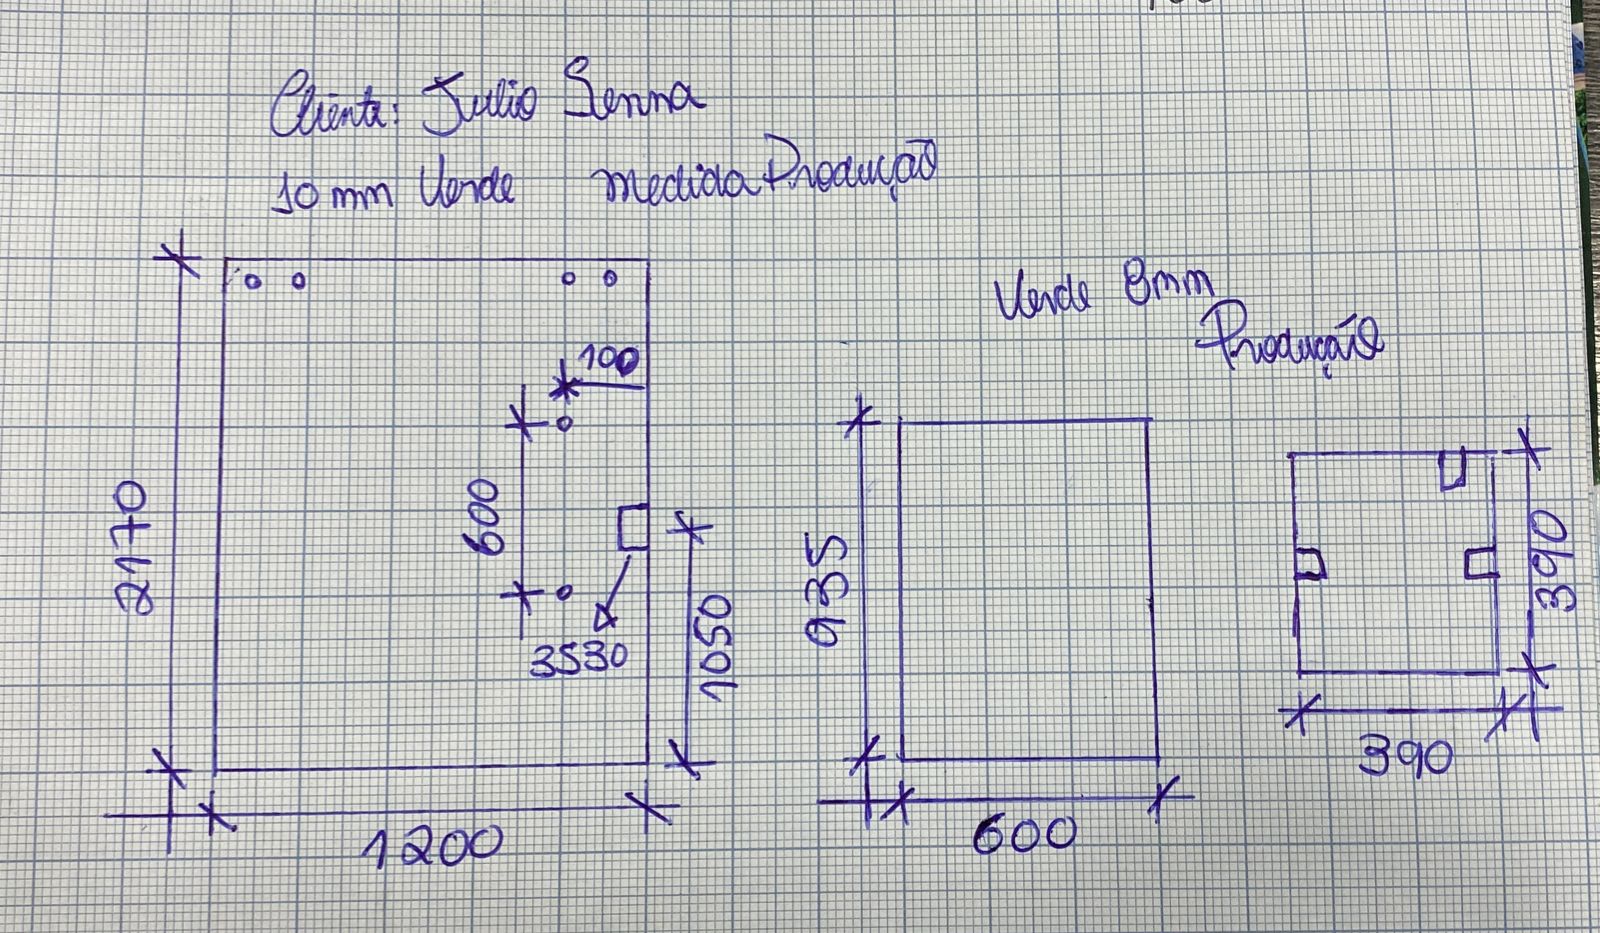 Cliente: Julio Senna
10 mm Verde medida Produção
Verde 8mm
Produção
100
600
2170
3530
1050
1200
935
600
390
390